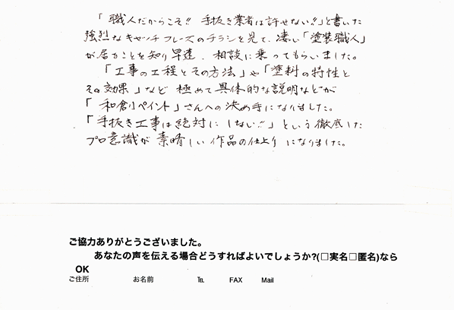 「職人だからこそ!! 手抜き業者は許せない!!」と書いた
強烈なキャッチフレーズのチラシを見て、凄い「塗装職人」
が居ることを知り早速、相談に乗ってもらいました。
「工事の工程とその方法」や「塗料の特性と
その効果」など 極めて具体的な説明などが
「和創ペイント」さんへの決め手になりました。
「手抜き工事は絶対にしない!!」という徹底した
プロ意識が 素晴しい作品の仕上りになりました。
ご協力ありがとうございました。
あなたの声を伝える場合どうすればよいでしょうか?(□実名□匿名)なら
OK
ご住所 お名前 ℡ FAX Mail